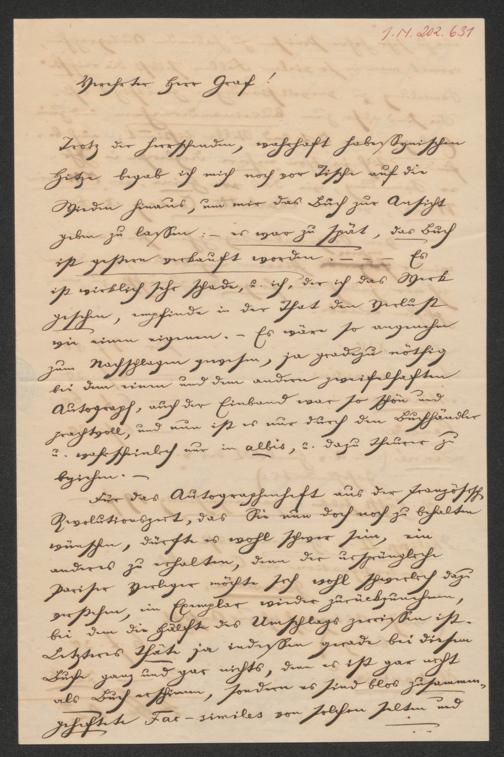 I.N. 202.631
Verehrter Herr Graf!
Trotz der herrschenden, wahrhaft habessynischen
Hitze begab ich mich noch vor Tische auf die
Wieden hinaus, um mir das Buch zur Ansicht
geben zu lassen: – es war zu spät, das Buch
ist gestern verkauft worden. – – – Es
ist wirklich sehr schade, u. ich, der ich das Werk
gesehen, empfinde in der That den Verlust
wie einen eigenen. – Es wäre so angenehm
zum Nachschlagen gewesen, ja gradezu nöthig
bei dem einen und dem andern zweifelhaften
Autograph, auch der Einband war so schön und
prachtvoll, und nun ist es nur durch den Buchhändler
u. wahrscheinlich nur in albis, u. dazu theurer zu
beziehen. –
Für das Autographenheft aus der französisch.
Revolutionszeit, das Sie nun doch noch zu behalten
wünschen, dürfte es wohl schwer sein, ein
anderes zu erhalten, denn der ursprüngliche
Pariser Verleger möchte sich wohl schwerlich dazu
verstehen, ein Exemplar wieder zurückzunehmen,
bei dem die Hälfte des Umschlags zerrissen ist.
Letzteres thäte ja indessen gerade bei diesem
Buche ganz und gar nichts, denn es ist gar nicht
als Buch erschienen, sondern es sind blos zusammen-
geheftete Fac-similes von solchen selten und